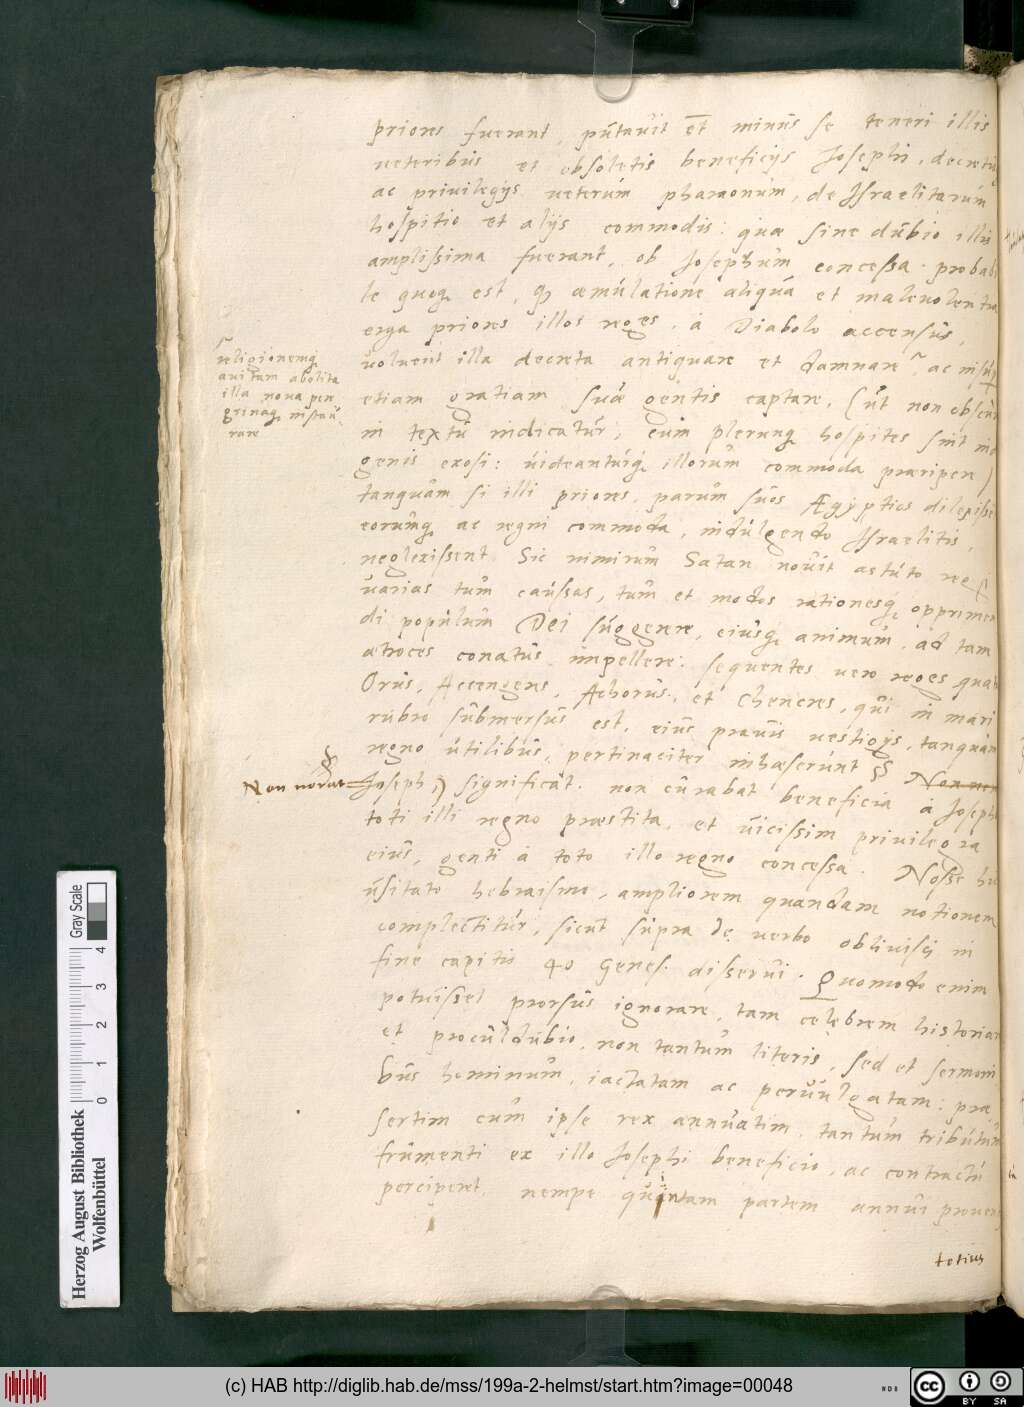 priores fuerant, putavit et minus se teneri illis
veteribus et obsoletis beneficijs Josephi, decretis
ac privilegijs veterum pharaonum, de Israelitarum
hospitio et alijs commodis: quae sine dubio illis
amplissima fuerant, ob Josephum concessa. probabi
le quoq; est, aemulatione aliqua et malevolentia
erga priores illos reges, a Diabolo accensus,
voluerit illa decreta antiquare et damnare ac
religionemq
avitam abolita
illa nova pere
grinaq; instau
rare
etiam gratiam suae gentis captare, (ut non obscure
in textu indicatur, cum plerunq; hospites sint indi
genis exosi: videanturq; illorum commoda praeripere)
tanquam si illi priores, parum suos Ægyptios dilexissent
eorumq; ac regni commoda, indulgendo Israelitis,
neglexissent. Sic nimirum Satan novit astuto regi
varias tum caussas, tum et modos rationesq; opprimen
di populum Dei suggerere, eiusq; animum, ad tam
atroces conatus impellere: sequentes vero reges quatuor
Orus, Accengeres, Achorus, et Cheneres, qui in mari
rubro submersus est, eius pravis vestigijs, tanquam
regno utilibus, pertinaciter inhaeserunt §§ Non nor
Non norat Joseph,) significat. non curabat beneficia a Josepho
toti illi regno praestita, et vicissim privilegia
eius, genti a toto illo regno concessa. Nosse hic
usitato hebraismo, ampliorem quandam notionem
complectitur, sicut supra de verbo oblivisci in
fine capitis 40 Genes. disserui. Quomodo enim
potuisset prorsus ignorare, tam celebrem historiam
et proculdubio, non tantum literis, sed et sermoni
bus hominum, iactatam ac pervulgatam: prae
sertim cum ipse rex annuatim, tantum tributum
frumenti ex illo Josephi beneficio, ac contractu
perciperet, nempe quintam partem annui proven
totius
Herzog August Bibliothek
Wolfenbüttel
0 1 2 3 4
Gray Scale
(c) HAB http://diglib.hab.de/mss/199a-2-helmst/start.htm?image=00048
cc BY SA